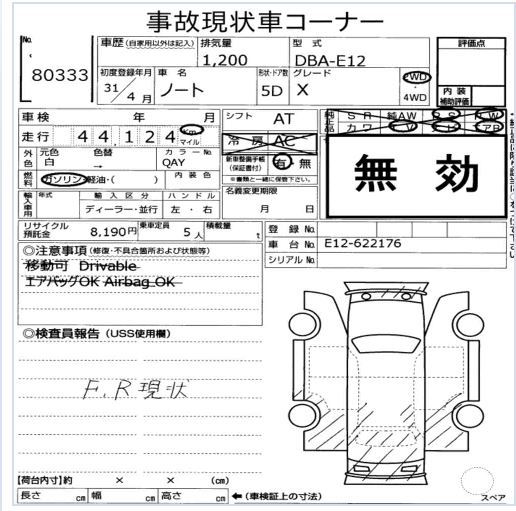 事故現状車コーナー
No.
80333
車歴 (自家用以外は記入)
排気量
1,200
型式
DBA-E12
評価点
初度登録年月
31/4月
車名
ノート
形状・ドア数
5D
グレード
X
2WD
4WD
内装
補助評価
車検 年 月
走行 44,124 Km マイル
シフト AT
冷房 AC
純正品
SR 純AW
カワ
エアB
無効
外色 元色 白
色替 →
カラーNo. QAY
内装色
燃料 ガソリン・軽油・( )
新車整備手帳
(保証書付)
有・無
※書類と一緒に保管下さい。
名義変更期限
月 日
輸入車用 年式
輸入区分
ディーラー・並行
ハンドル
左・右
リサイクル預託金 8,190円
乗車定員 5人
積載量 t
登録No.
車台No. E12-622176
シリアルNo.
◎注意事項 (修復・不具合箇所および状態等)
移動可 Drivable
エアバッグOK Airbag OK
◎検査員報告 (USS使用欄)
F,R現状
【荷台内寸】約 × × (cm)
長さ cm 幅 cm 高さ cm
← (車検証上の寸法)
スペア